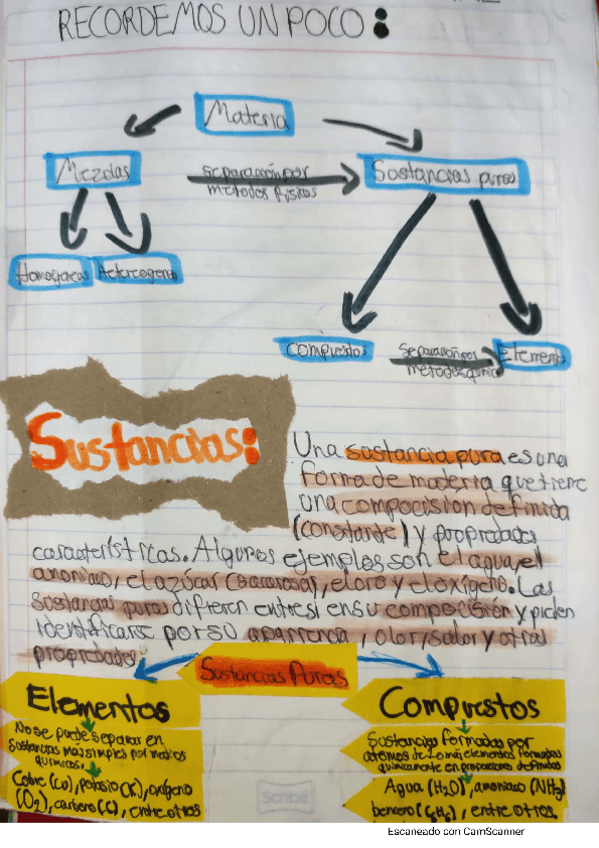 RECORDEMOS UN POCO:
Materia
Mezclas
separación por
metodos fisicos
Sustancias puras
Homogeneas
Heterogeneas
Compuestos
separación por
metodos quimicos
Elementos
Sustancias:
Una sustancia pura es una
forma de materia que tiene
una composición definida
(constante) y propiedades
características. Algunos ejemplos son el agua, el
amoniaco, el azúcar (sacarosa), el oro y el oxígeno. Las
sustancias puras difieren entre si en su composición y pueden
identificarse por su apariencia, olor, sabor y otras
propiedades
Sustancias Puras
Elementos
No se puede separar en
sustancias más simples por medios
quimicos.
Cobre (Cu), potasio (K), oxígeno
(O₂), carbono (C), entre otros
Compuestos
Sustancias formadas por
atomos de 2 o más elementos
quimicamente en proporciones definidas
Agua (H₂O), amoniaco (NH₃)
benceno (C₆H₆), entre otros
Scribe
Escaneado con CamScanner